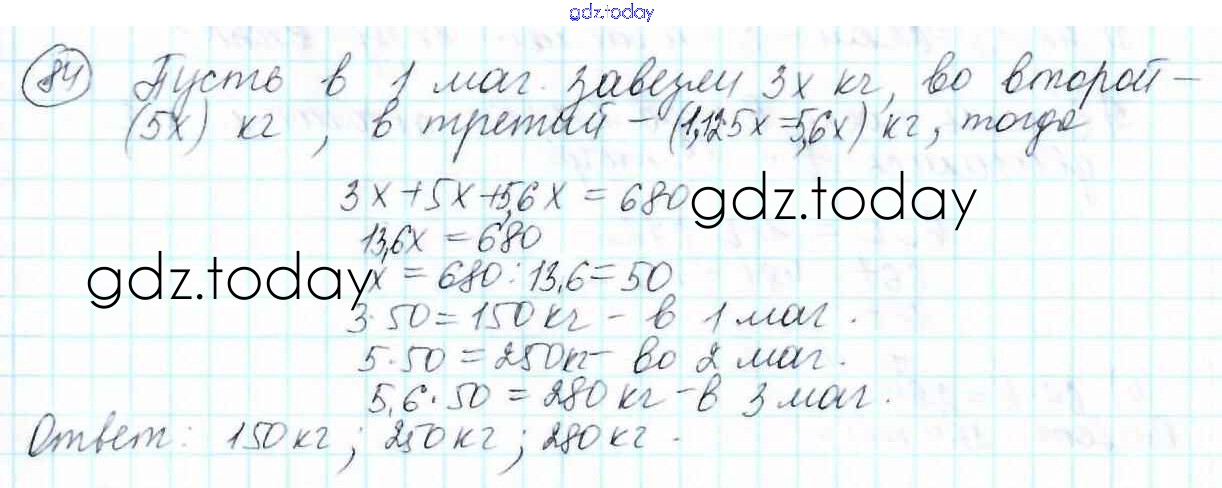 gdz.today
84 Пусть в 1 маг. завезли 3х кг, во второй –
(5х) кг, в третий – (1,125х=5,6х) кг, тогда
3х+5х+5,6х = 680
gdz.today
13,6х = 680
gdz.today
х = 680 : 13,6 = 50
3·50=150 кг – в 1 маг.
5·50 = 250кг – во 2 маг.
5,6·50 = 280 кг – в 3 маг.
Ответ: 150 кг; 250 кг; 280 кг.